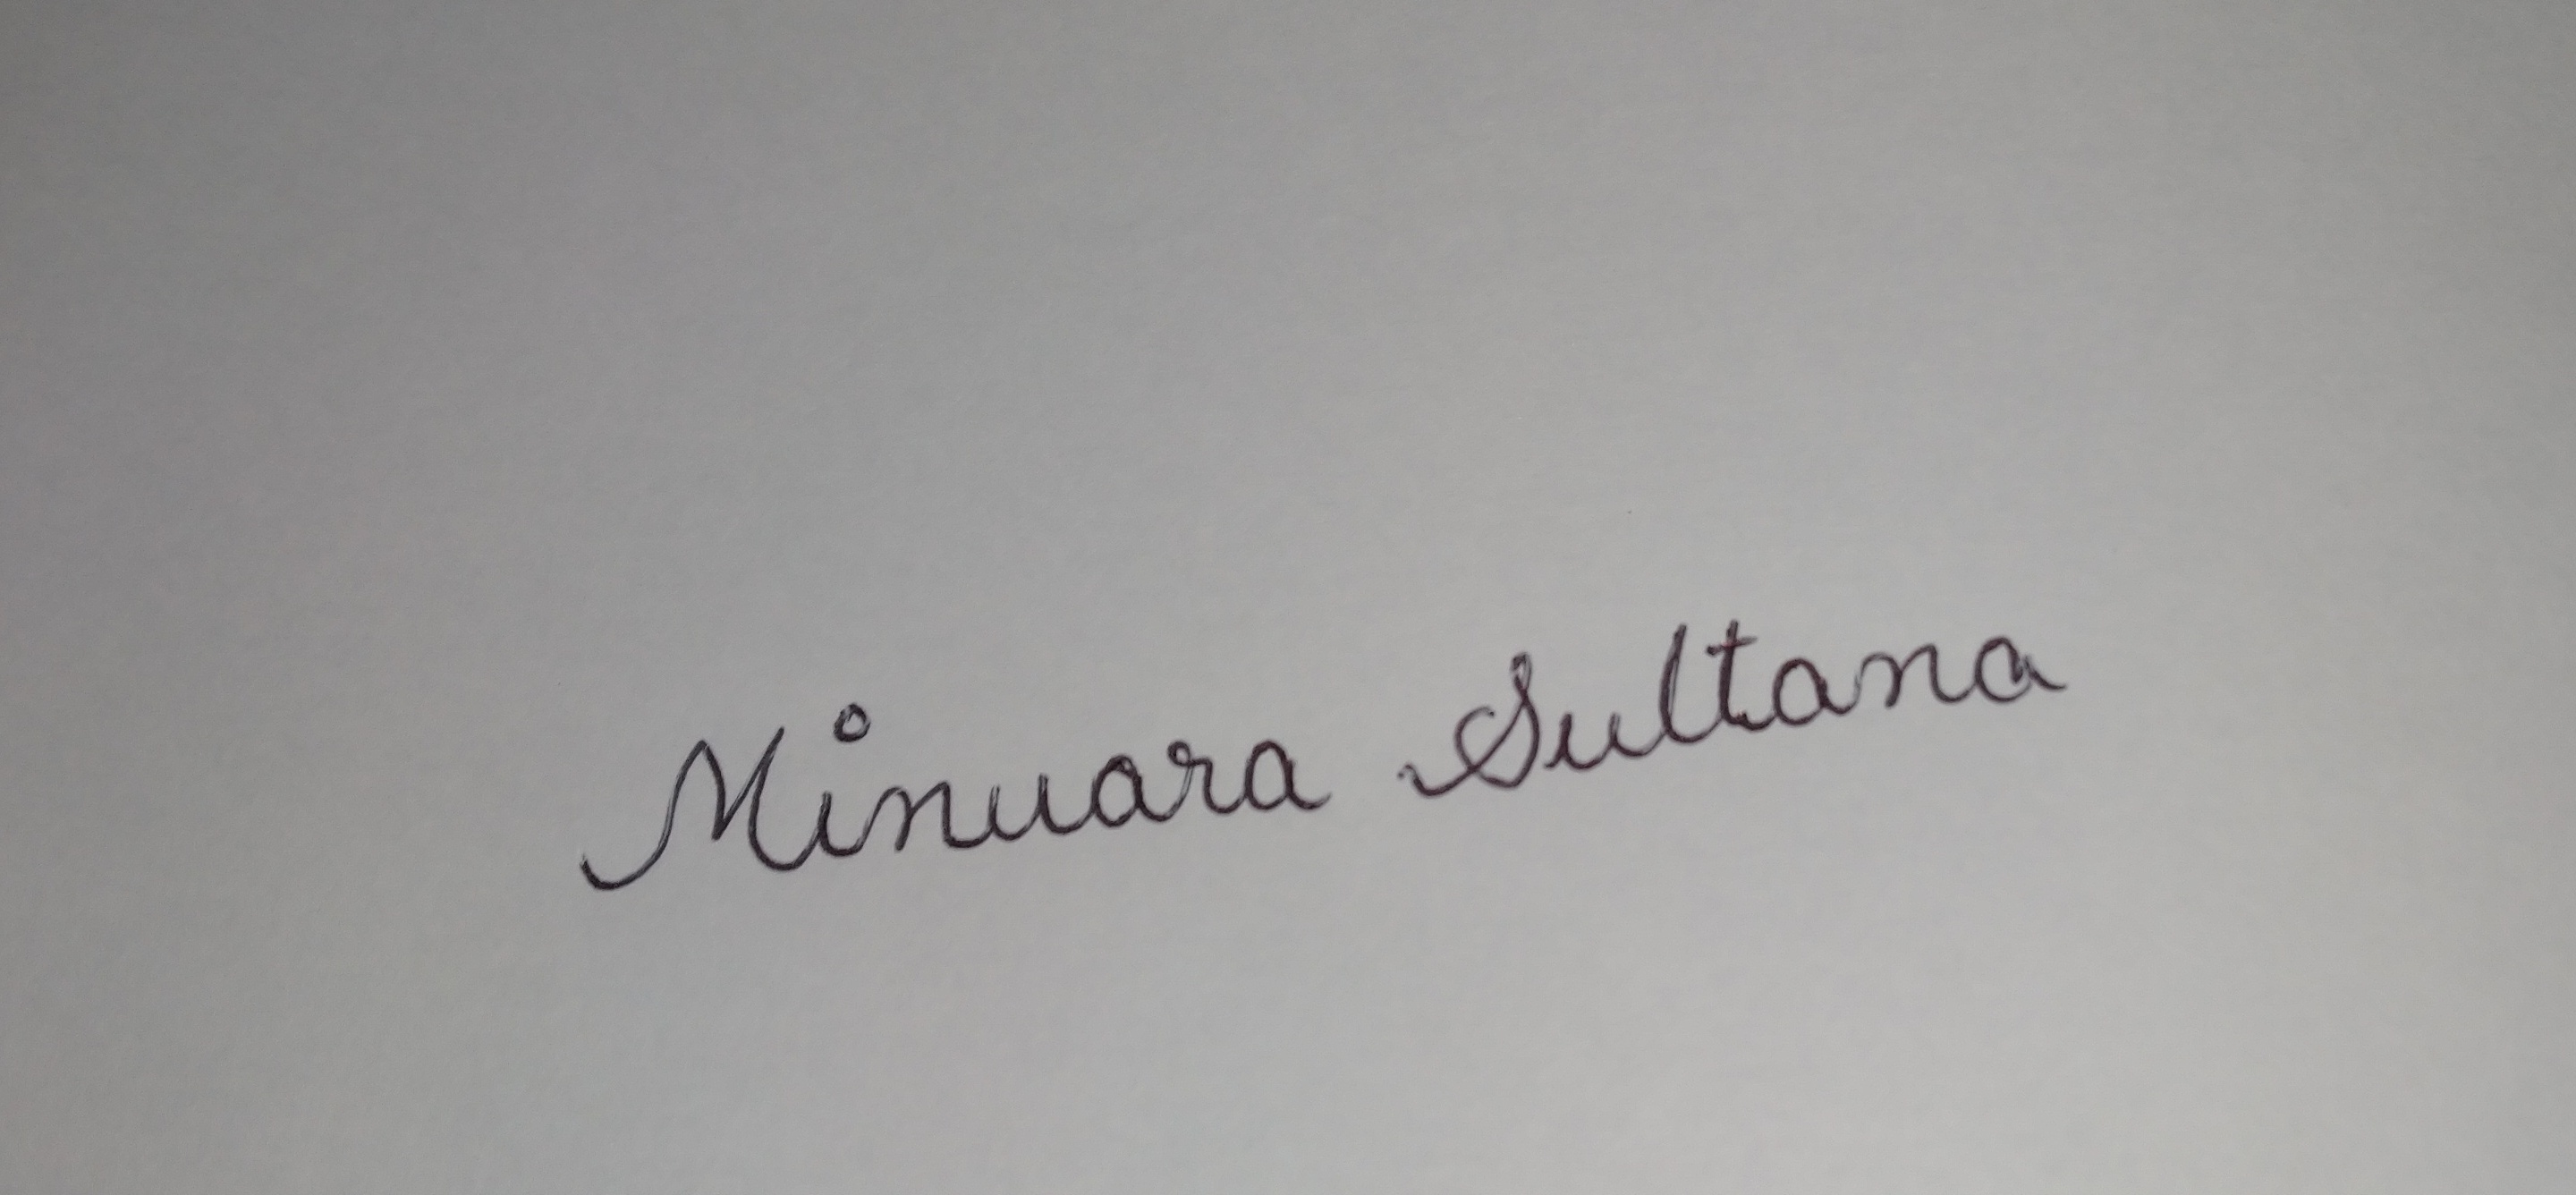 Minuara Sultana